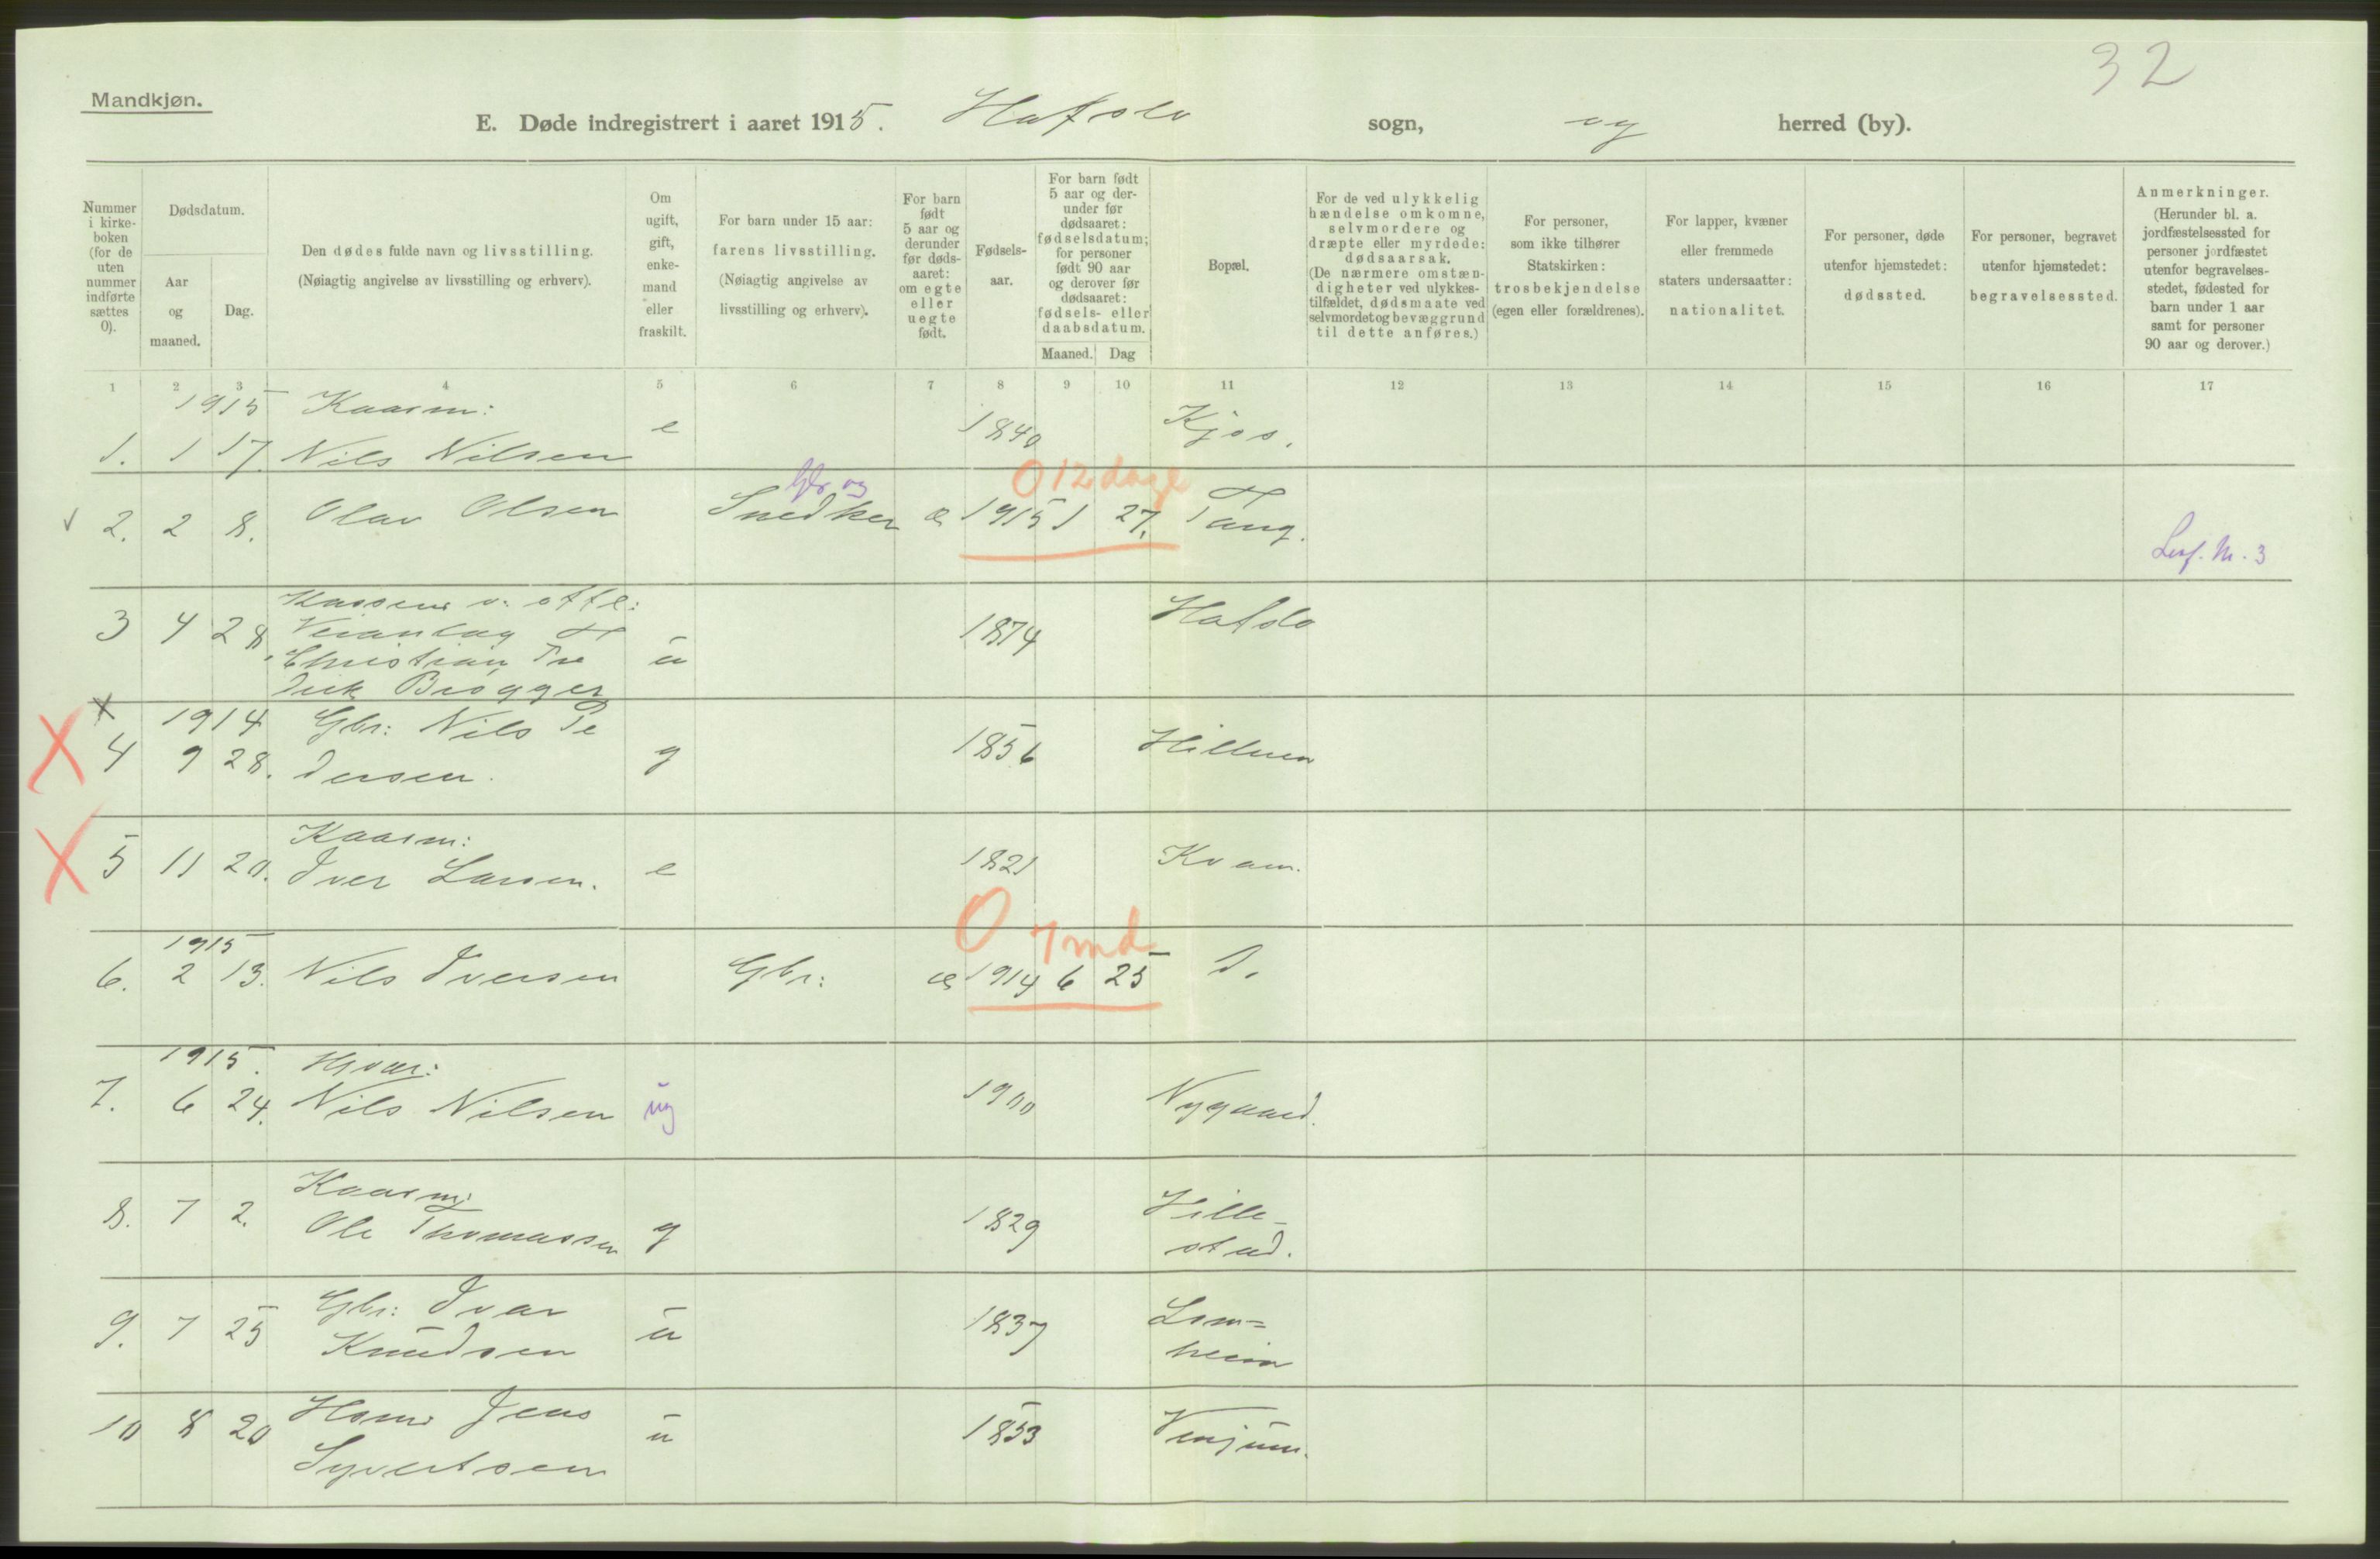 32
Mandkjøn.
E. Døde indregistrert i aaret 1915. Hafslo sogn, og herred (by).
Nummer i kirke-boken (for de uten nummer indførte sættes 0).
Dødsdatum.
Aar og maaned.
Dag.
Den dødes fulde navn og livsstilling.
(Nøiagtig angivelse av livsstilling og erhverv).
Om ugift, gift, enke-mand eller fraskilt.
For barn under 15 aar: farens livsstilling.
(Nøiagtig angivelse av livsstilling og erhverv).
For barn født 5 aar og derunder før døds-aaret: om egte eller uegte født.
Fødsels-aar.
For barn født 5 aar og der-under før dødsaaret: fødselsdatum; for personer født 90 aar og derover før dødsaaret: fødsels- eller daabsdatum.
Maaned. Dag
Bopæl.
For de ved ulykkelig hændelse omkomne, selvmordere og dræpte eller myrdede: dødsaarsak.
(De nærmere omstæn-digheter ved ulykkes-tilfældet, dødsmaate ved selvmordet og bevæggrund til dette anføres.)
For personer, som ikke tilhører Statskirken: trosbekjendelse (egen eller forældrenes).
For lapper, kvæner eller fremmede staters undersaatter: nationalitet.
For personer, døde utenfor hjemstedet: dødssted.
For personer, begravet utenfor hjemstedet: begravelsessted.
Anmerkninger.
(Herunder bl. a. jordfæstelsessted for personer jordfæstet utenfor begravelses-stedet, fødested for barn under 1 aar samt for personer 90 aar og derover.)
1 2 3 4 5 6 7 8 9 10 11 12 13 14 15 16 17
1915 Kaarm:
1. 1 17. Nils Nilsen e 1840 Kjos.
Gbr og 0 12 dage
2. 2 8. Olav Olsen Snedker æ 1915 1 27. Tang.
Lerf. Nr. 3
Kasserer v. off:
3 4 28. Veianlæg 1874 Hafslo
Christian Fre u
drik Brøgger
1914 Gbr: Nils Pe
4 9 28. dersen. g 1856 Hillum
Kaarm:
5 11 20. Iver Larsen. e 1821 Kvam.
0 7 md
1915
6. 2 13. Nils Iversen Gbr: æ 1914 6 25 D.
1915.
7. 6 24. Nils Nilsen ug 1900 Nygaard.
Kaarm:
8. 7 2. Ole Thomassen g 1829 Hille-
stad.
Gbr: Ivar
9. 7 25 Knudsen u 1837 Lom=
heim
Jens
10 8 20 Syvertsen u 1853 Venjum.